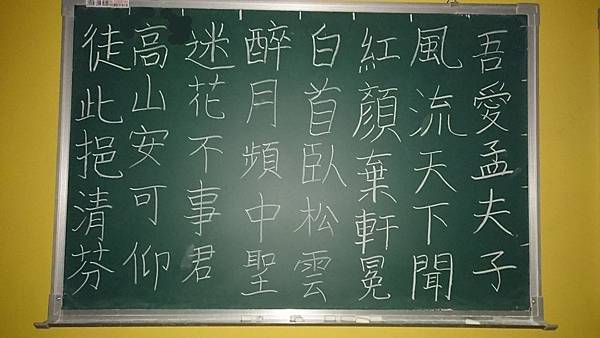 吾愛孟夫子
風流天下聞
紅顏棄軒冕
白首臥松雲
醉月頻中聖
迷花不事君
高山安可仰
徒此挹清芬